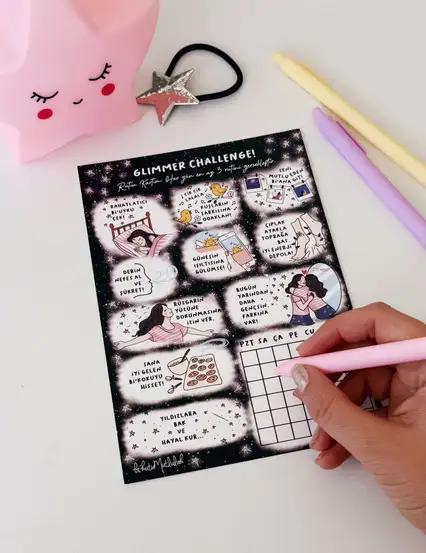 GLIMMER CHALLENGE!
Rutin Kartım: Her gün en az 3 rutini gerçekleştir
RAHATLATICI
Bİ'UYKU
ÇEK!
CİK CİK
LALALA
KUŞLARIN
ŞARKISINA
ODAKLAN!
SENİ
MUTLU EDEN
Bİ'ANA GİT!
GÜNEŞİN
IŞILTISINA
GÜLÜMSE!
ÇIPLAK
AYAKLA
TOPRAĞA
BAS,
İYİ ENERJİ
DEPOLA!
DERİN
NEFES AL
VE
ŞÜKRET!
RÜZGARIN
YÜZÜNE
DOKUNMASINA
İZİN VER.
BUGÜN
YARINDAN
DAHA
GENÇSİN,
FARKINA
VAR!
SANA
İYİ GELEN
Bİ'KOKUYU
HİSSET!
PZT SA ÇA PE CU
YILDIZLARA
BAK
VE
HAYAL KUR...